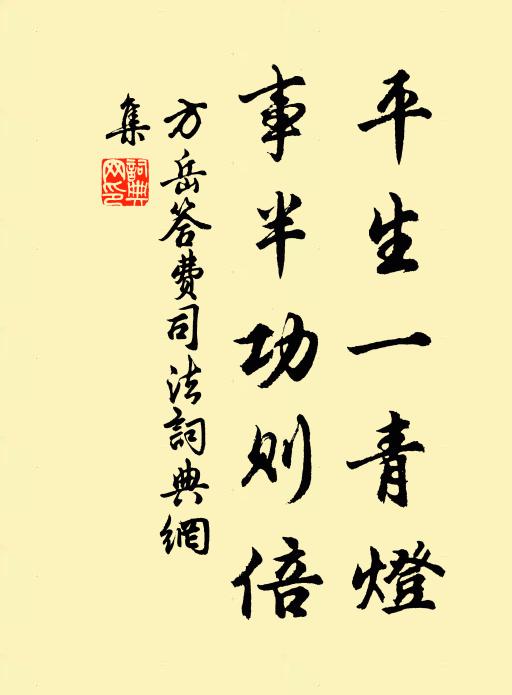 平生一青燈
事半功则倍
方岳答費司法詞典網
集
詞典網印